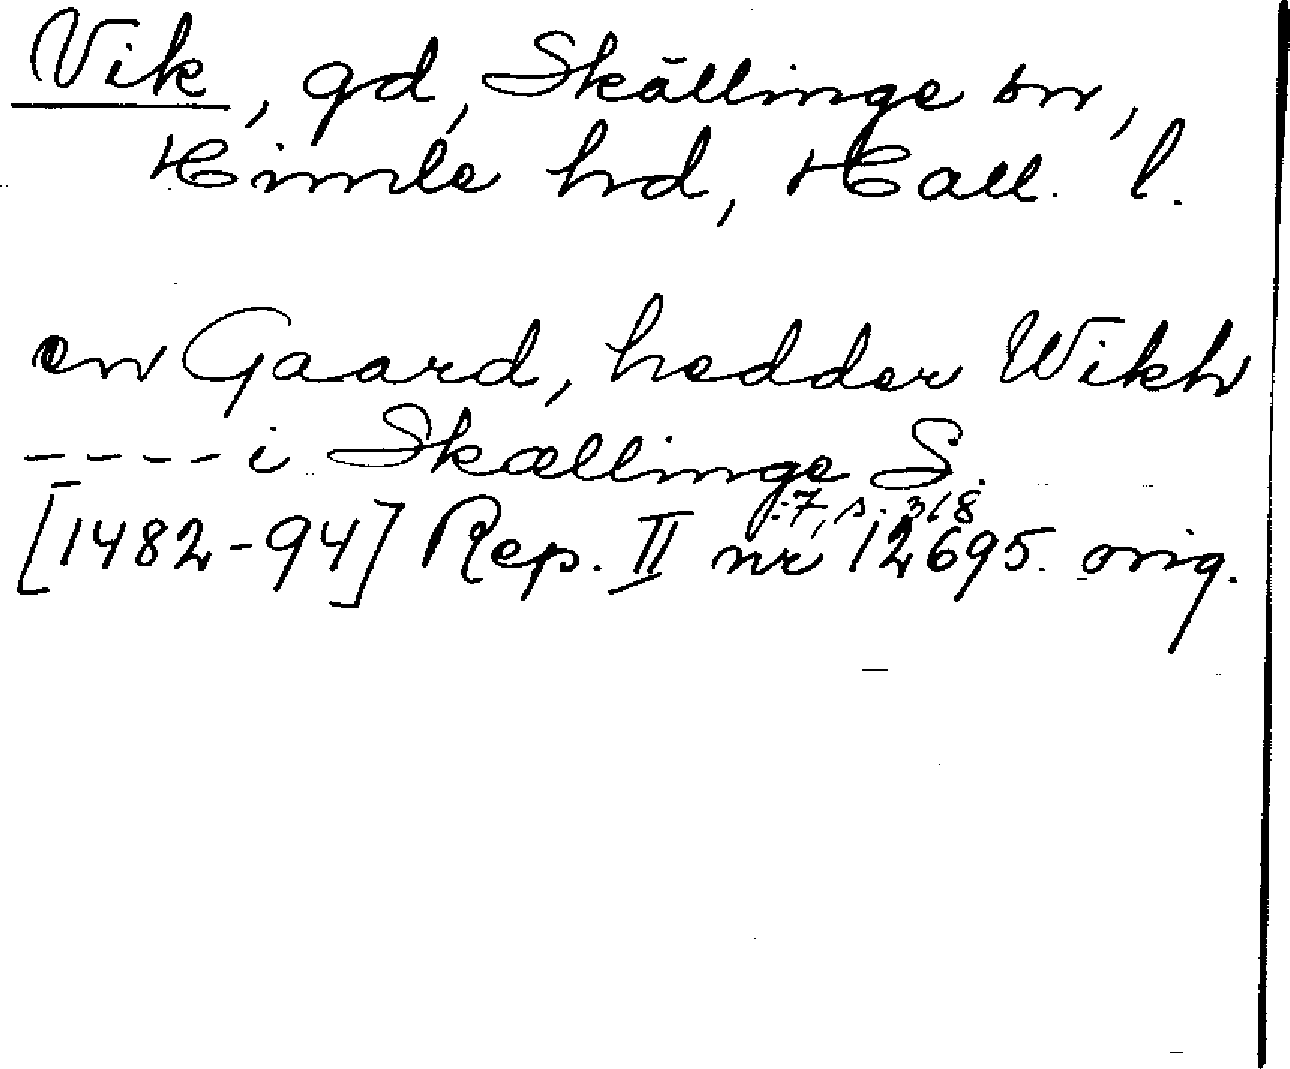 Vik, gd, Skällinge sn,
Himle hd, Hall. l.
en Gaard, hedder Wikh
---- i Skællinge S.
:7, s. 318
[1482-94] Rep. II nr 12695. orig.